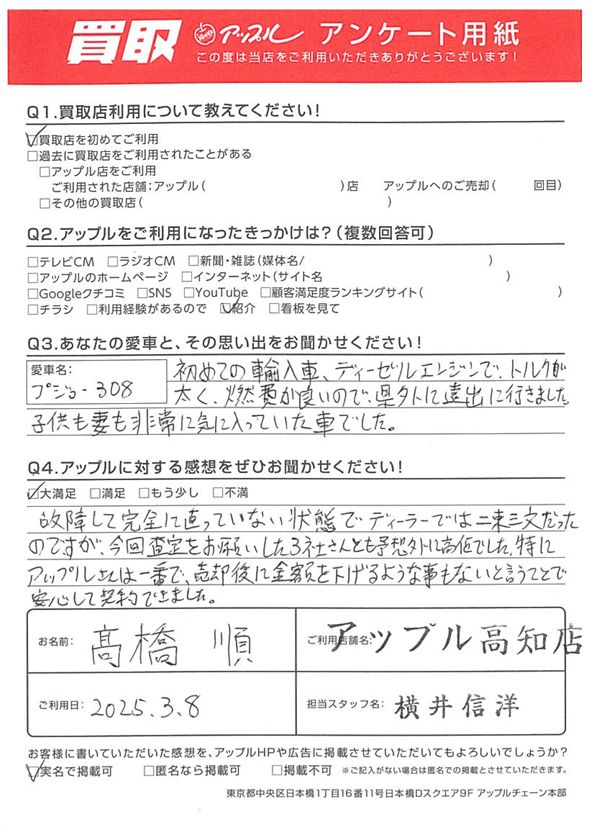 買取 アップル アンケート用紙
この度は当店をご利用いただきありがとうございます!
Q1.買取店利用について教えてください!
☑買取店を初めてご利用
□過去に買取店をご利用されたことがある
□アップル店をご利用
ご利用された店舗:アップル( )店 アップルへのご売却( 回目)
□その他の買取店( )
Q2.アップルをご利用になったきっかけは?(複数回答可)
□テレビCM □ラジオCM □新聞・雑誌(媒体名/ )
□アップルのホームページ □インターネット(サイト名 )
□Googleクチコミ □SNS □YouTube □顧客満足度ランキングサイト( )
□チラシ □利用経験があるので ☑紹介 □看板を見て
Q3.あなたの愛車と、その思い出をお聞かせください!
愛車名:
プジョー308
初めての輸入車、ディーゼルエンジンで、トルクが
太く、燃費が良いので、県外に遠出に行きました。
子供も妻も非常に気に入っていた車でした。
Q4.アップルに対する感想をぜひお聞かせください!
☑大満足 □満足 □もう少し □不満
故障して完全に直っていない状態でディーラーでは二束三文だった
のですが、今回査定をお願いした3社さんとも予想外に高値でした。特に
アップルさんは一番で、売却後に金額を下げるような事もないと言うことで
安心して契約できました。
お名前: 髙橋 順 ご利用店舗名: アップル高知店
ご利用日: 2025.3.8 担当スタッフ名: 横井信洋
お客様に書いていただいた感想を、アップルHPや広告に掲載させていただいてもよろしいでしょうか?
☑実名で掲載可 □匿名なら掲載可 □掲載不可 ※ご記入がない場合は匿名での掲載とさせていただきます。
東京都中央区日本橋1丁目16番11号日本橋Dスクエア9F アップルチェーン本部